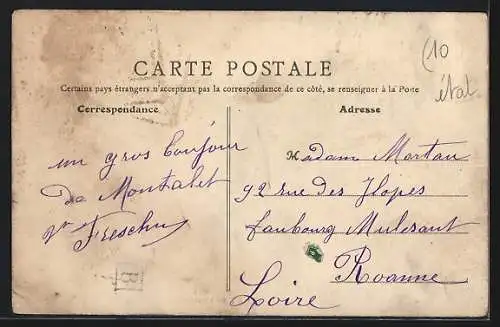 (10
état
CARTE POSTALE
Certains pays étrangers n'acceptant pas la correspondance de ce côté, se renseigner à la Poste
Correspondance
Adresse
un gros bonjour
De Montalet
Madame Martau
92 rue des
faubourg Mulsant
Roanne
Loire
B